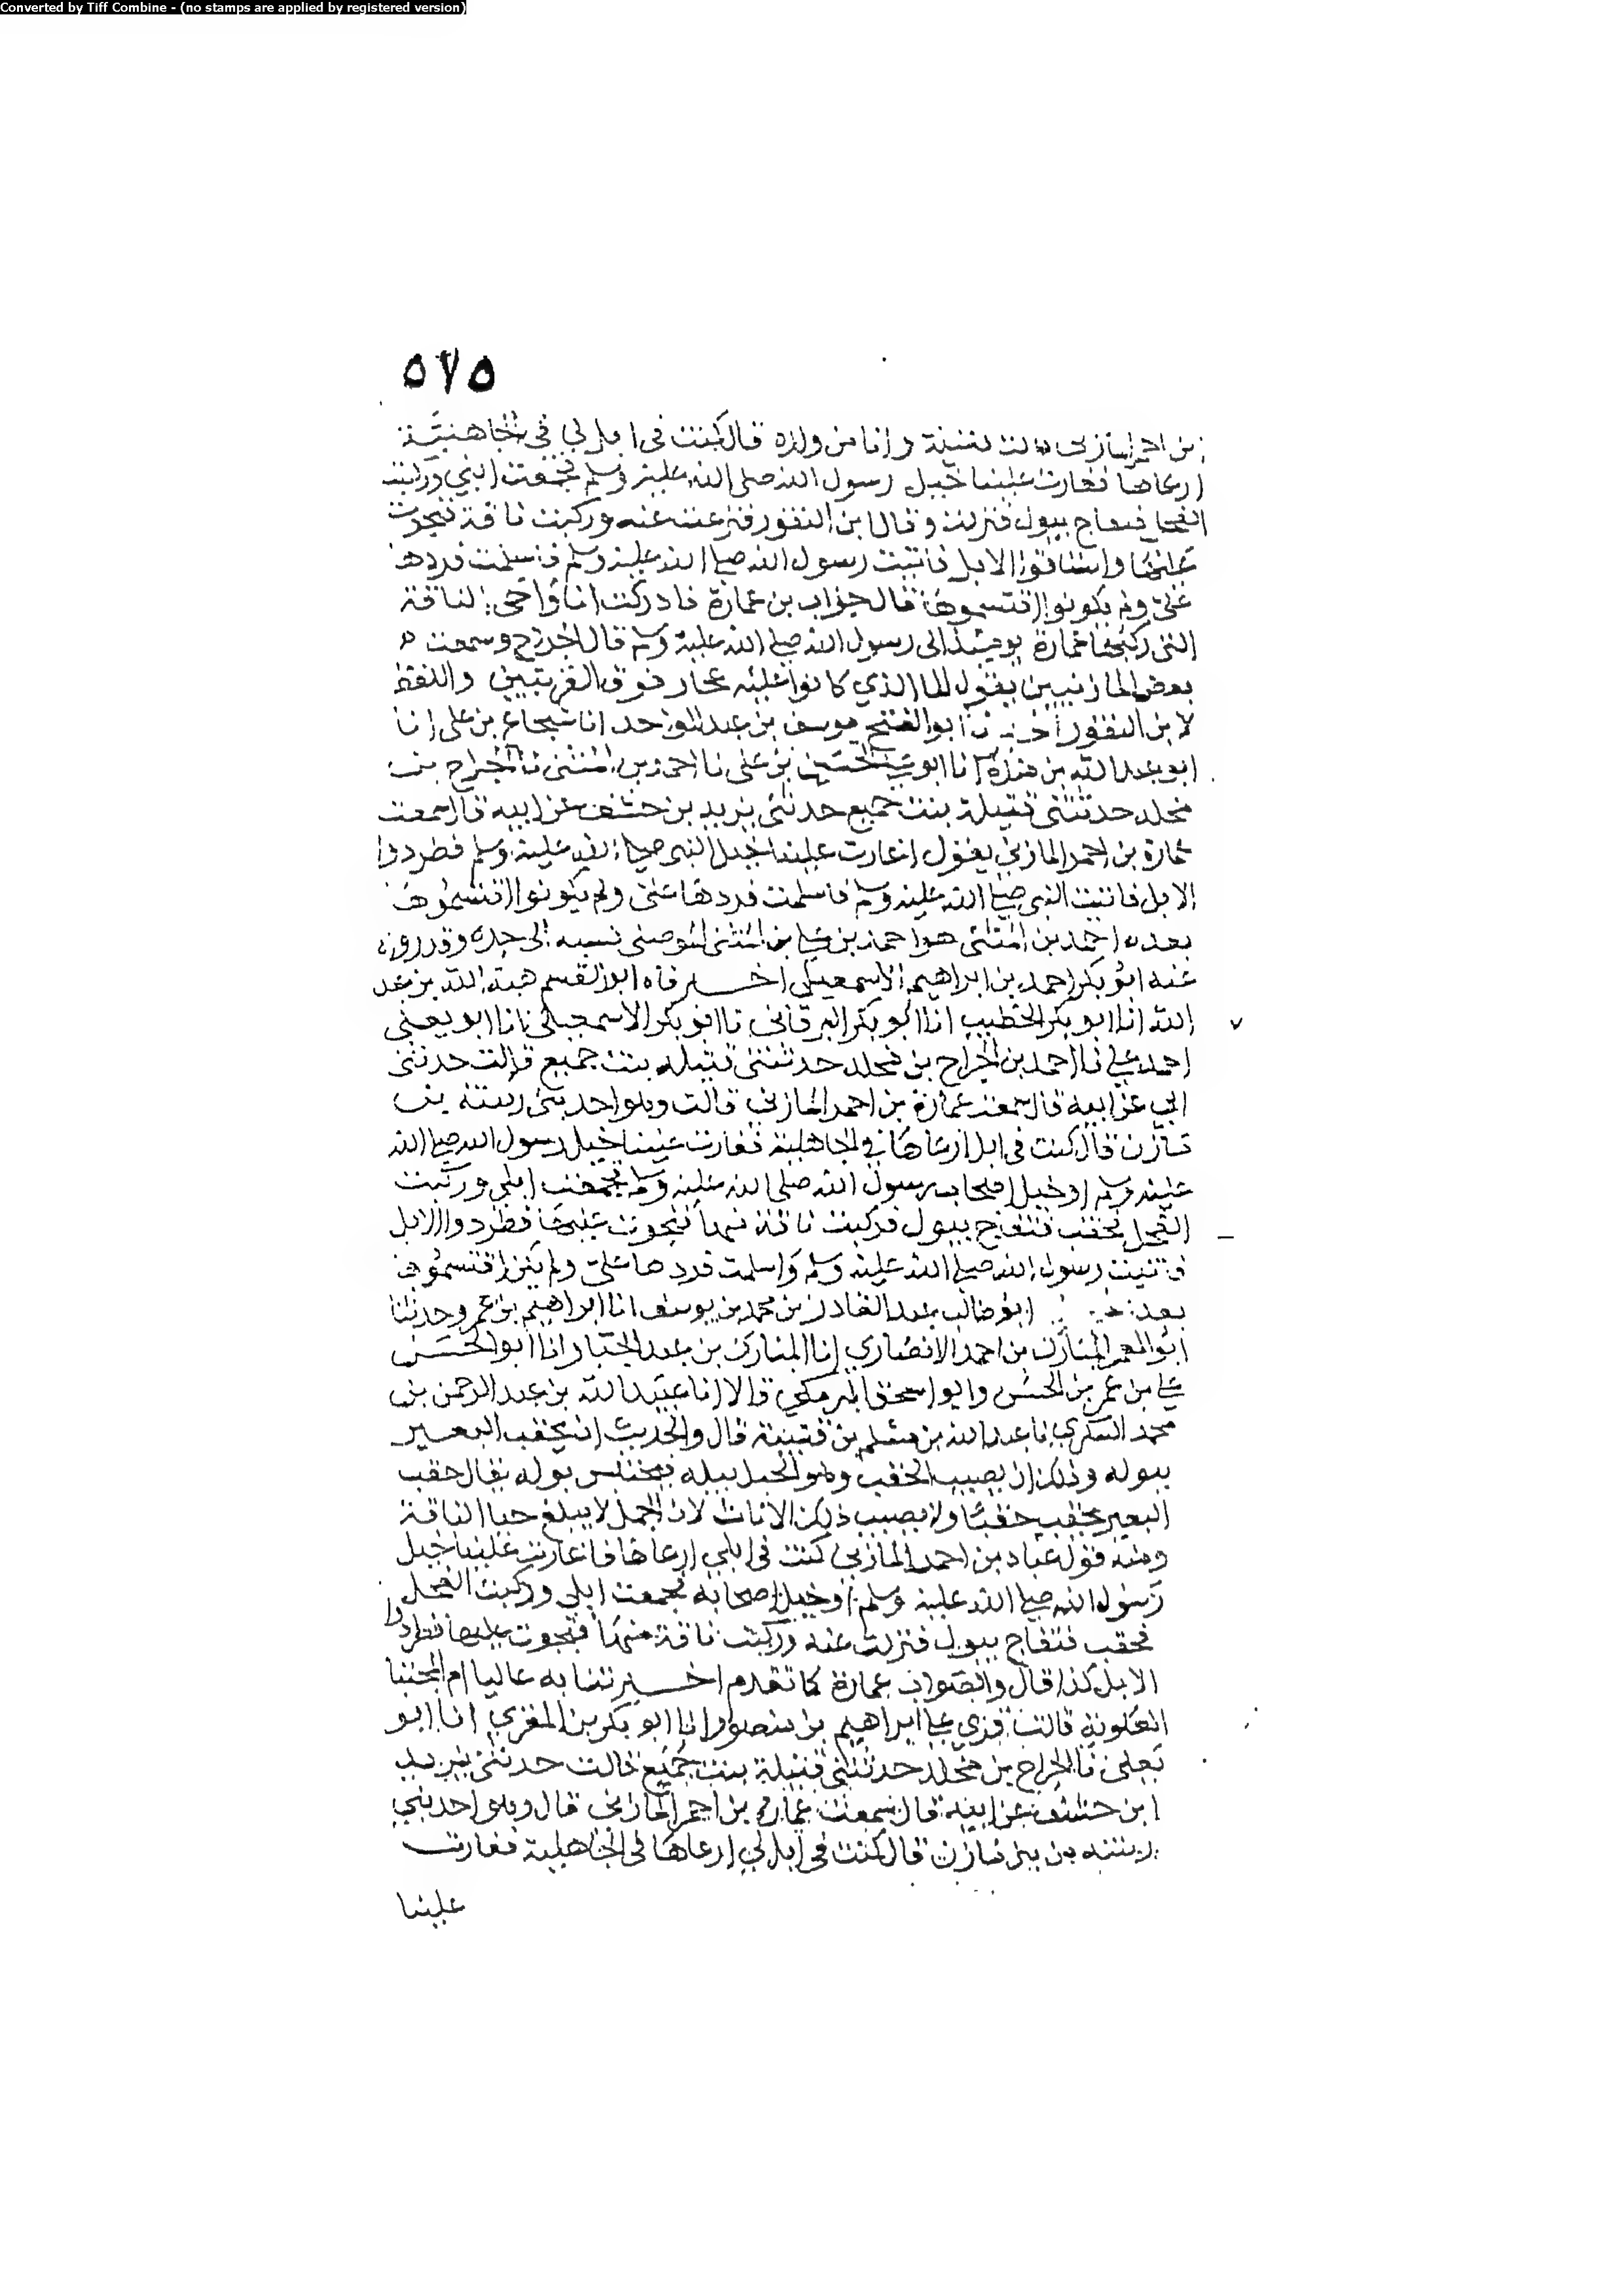 Converted by Tiff Combine - (no stamps are applied by registered version)
٥٧٥
بن احمر المازني قالت قتيلة وانا من ولده قال كنت في ابل لي في الجاهلية
ارعاها فغارت علينا خيل رسول الله صلى الله عليه وسلم فجمعت ابلي وركبت
الفحل فتفاج يبول فنزلت وقال ابن النقور فنزعت عنه وركبت ناقة فنجوت
عليها واستاقوا الابل فاتيت رسول الله صلى الله عليه وسلم فاسلمت فردها
علي ولم يكونوا اقتسموها قال جواب بن عمارة فادركت انا واخي الناقة
التي ركبها عمارة يومئذ الى رسول الله صلى الله عليه وسلم قال الجراح وسمعت
بعض المازنيين يقول الما الذي كانوا عليه عجلز فوق القريتين واللفظ
لابن النقور اخبرنا ابو الفتح يوسف بن عبد الواحد انا شجاع بن علي انا
ابو عبد الله بن منده انا ابو علي الحسين بن علي نا احمد بن المثنى نا الجراح بن
مخلد حدثتني قتيلة بنت جميع حدثني يزيد بن حنيف عن ابيه قال سمعت
عمارة بن احمر المازني يقول اغارت علينا خيل النبي صلى الله عليه وسلم فطردوا
الابل فاتيت النبي صلى الله عليه وسلم فاسلمت فردها علي ولم يكونوا اقتسموها
بعد احمد بن المثنى هو احمد بن علي بن المثنى الموصلي نسبه الى جده وقد رواه
عنه ابو بكر احمد بن ابراهيم الاسمعيلي اخبرناه ابو القسم هبة الله بن عبد
الله انا ابو بكر الخطيب انا ابو بكر البرقاني نا ابو بكر الاسمعيلي نا ابو يعلى
احمد بن علي نا احمد بن الجراح بن مخلد حدثتني قتيلة بنت جميع قالت حدثني
ابي عن ابيه قال سمعت عمارة بن احمر المازني قالت وهو احد بني ربيته بن
مازن قال كنت في ابل ارعاها في الجاهلية فغارت علينا خيل رسول الله صلى الله
عليه وسلم او خيل اصحاب رسول الله صلى الله عليه وسلم فجمعت ابلي وركبت
الفحل فحقب فتفاج يبول فركبت ناقة منها فنجوت عليها فطردوا الابل
فاتيت رسول الله صلى الله عليه وسلم واسلمت فردها علي ولم يكونوا اقتسموها
بعد ابو طالب عبد القادر بن محمد بن يوسف انا ابراهيم بن عمر وحدثنا
ابو المعمر المبارك بن احمد الانصاري انا المبارك بن عبد الجبار انا ابو الحسن
علي بن عمر بن الحسن وابو اسحق البرمكي قالا انا عبيد الله بن عبد الرحمن بن
محمد السكري نا عبد الله بن مسلم بن قتيبة قال والحديث ان يحقب البعير
ببوله وذلك ان يصيب الحقب وهو الحبل نيله فيحتبس بوله يقال حقب
البعير يحقب حقبا ولا يصيب ذلك الاناث لان الحبل لا يبلغ حيا الناقة
ومنه قول عباد بن احمر المازني كنت في ابلي ارعاها فاغارت علينا خيل
رسول الله صلى الله عليه وسلم او خيل اصحابه فجمعت ابلي وركبت الفحل
فحقب فتفاج يبول فنزلت عنه وركبت ناقة منها فنجوت عليها فطردوا
الابل كذا قال والصواب عمارة كما تقدم اخبرتنا به عاليا ام المجتبا
العلوية قالت قري على ابراهيم بن منصور انا ابو بكر بن المقري انا ابو
يعلى نا الجراح بن مخلد حدثتني قتيلة بنت جميع قالت حدثني يزيد
ابن حنيف عن ابيه قال سمعت عمارة بن احمر المازني قال وهو احد بني
ربيته بن بني مازن قال كنت في ابل لي ارعاها في الجاهلية فغارت
علينا